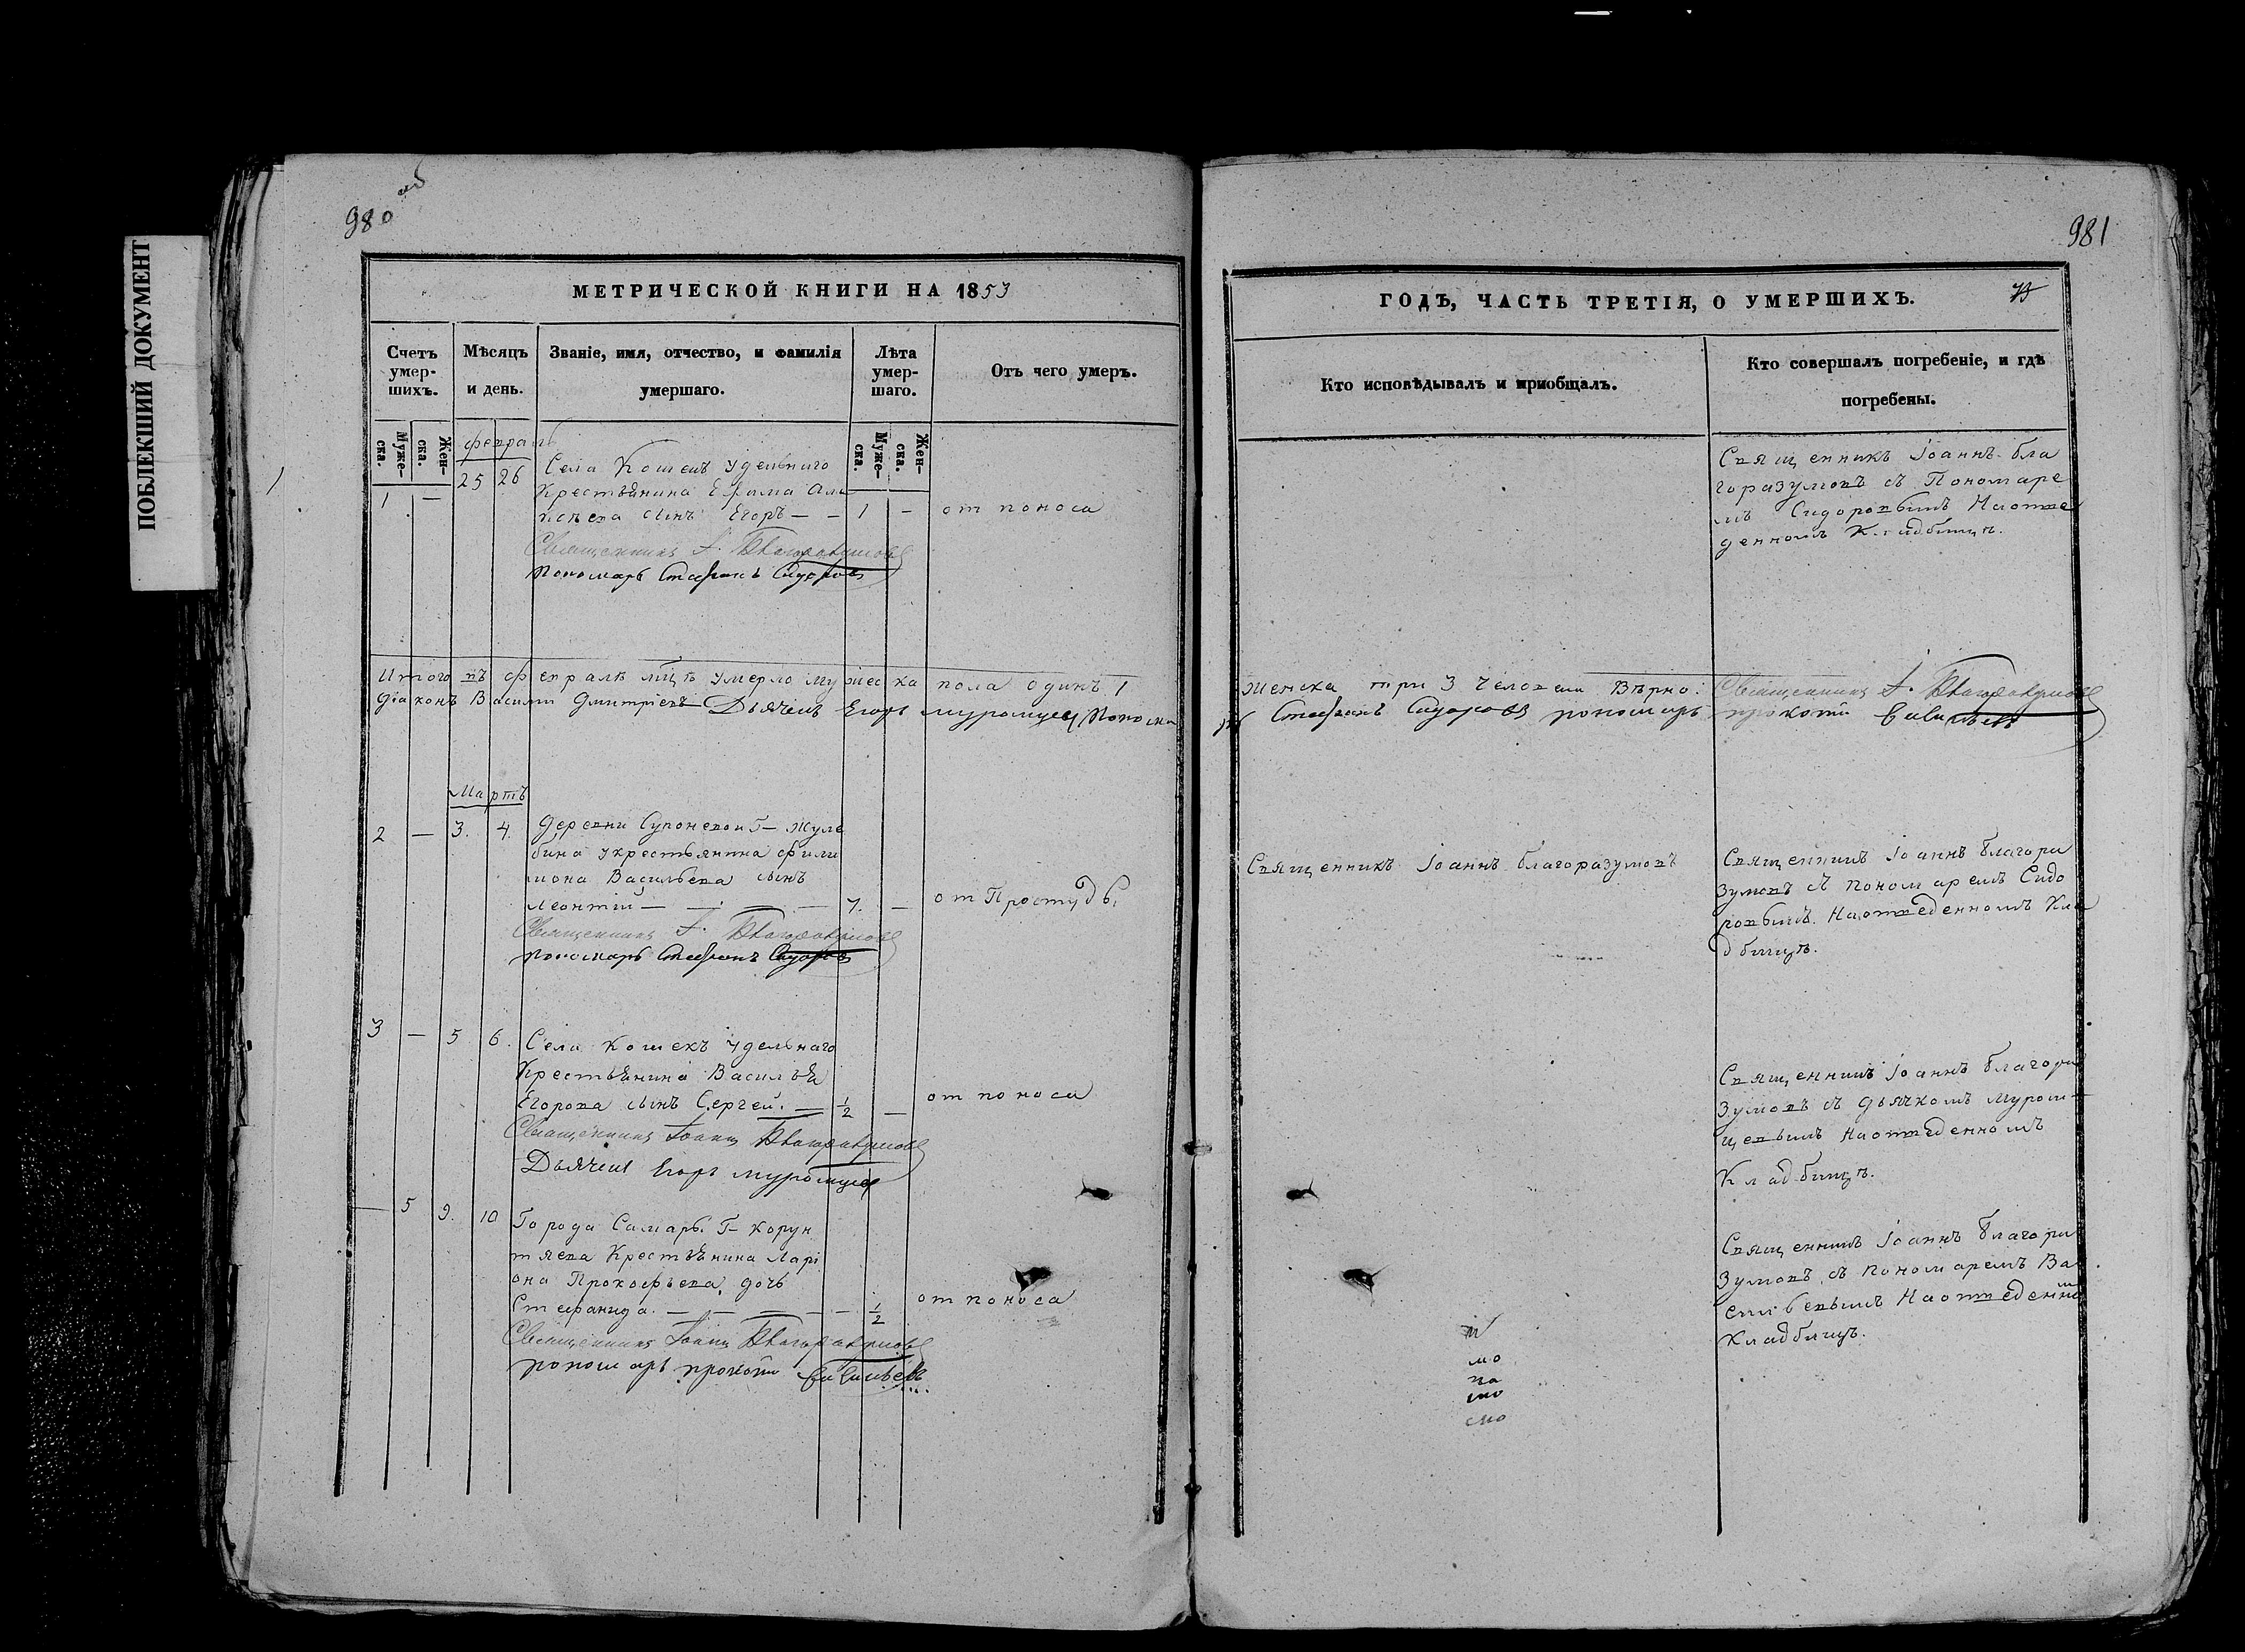 ПОБЛЕКШИЙ ДОКУМЕНТ
980 об
МЕТРИЧЕСКОЙ КНИГИ НА 1853
Счетъ умер-шихъ.
Мѣсяцъ и день.
Званіе, имя, отчество, и фамилія
умершаго.
Лѣта умер-шаго.
Отъ чего умеръ.
Муже-ска.
Жен-ска.
Муже-ска.
Жен-ска.
февраль
1 — 25 26
Села Кошекъ удельнаго
Крестьянина Ефима Але
ксѣева сынъ Егоръ — — 1 — от поноса
Священникъ І. Благоразумовъ
Пономарь Стефанъ Сидоровъ
Итого въ февралѣ мцѣ умерло мужеска пола одинъ 1
діаконъ Василій Дмитріевъ Дьячекъ Егоръ Муромцев Понома
Мартъ
2 — 3. 4.
деревни Супоневой Г— Жуле
бина крестьянина фили
мона Васильева сынъ
Леонтій — — — — 7. — от Простуды
Священникъ І. Благоразумовъ
Пономарь Стефанъ Сидоровъ
3 — 5 6.
Села Кошекъ удельнаго
Крестьянина Василья
Егорова сынъ Сергей. — 1/2 — от поноса
Священникъ Іоаннъ Благоразумовъ
Дьячекъ Егоръ Муромцев
— 5 9. 10
Города Самары Г— Корун
тяева Крестьянина Ларі
она Прокофьева дочь
Стефанида. — — — — 1/2 от поноса
Священникъ Іоаннъ Благоразумовъ
пономарь прокопій Васильевъ
981
ГОДЪ, ЧАСТЬ ТРЕТІЯ, О УМЕРШИХЪ.
Кто исповѣдывалъ и пріобщалъ.
Кто совершалъ погребеніе, и гдѣ
погребены.
Священникъ Іоаннъ бла
горазумовъ съ Пономаре
мъ Сидоровымъ На отве
денномъ Кладбищѣ.
Женска три 3 человека Вѣрно: Священникъ І. Благоразумовъ
рь Стефанъ Сидоровъ пономарь прокопій Васильевъ
Священникъ Іоаннъ благоразумовъ
Священникъ Іоаннъ благора
зумовъ съ пономаремъ Сидо
ровымъ. На отведенномъ Кла
дбищѣ.
Священникъ Іоаннъ благора
зумовъ съ дьячкомъ Муром-
цевымъ На отведенномъ
Кладбищѣ.
Священникъ Іоаннъ благора
зумовъ съ пономаремъ Ва
сильевымъ На отведенно
Кладбищѣ.
мо